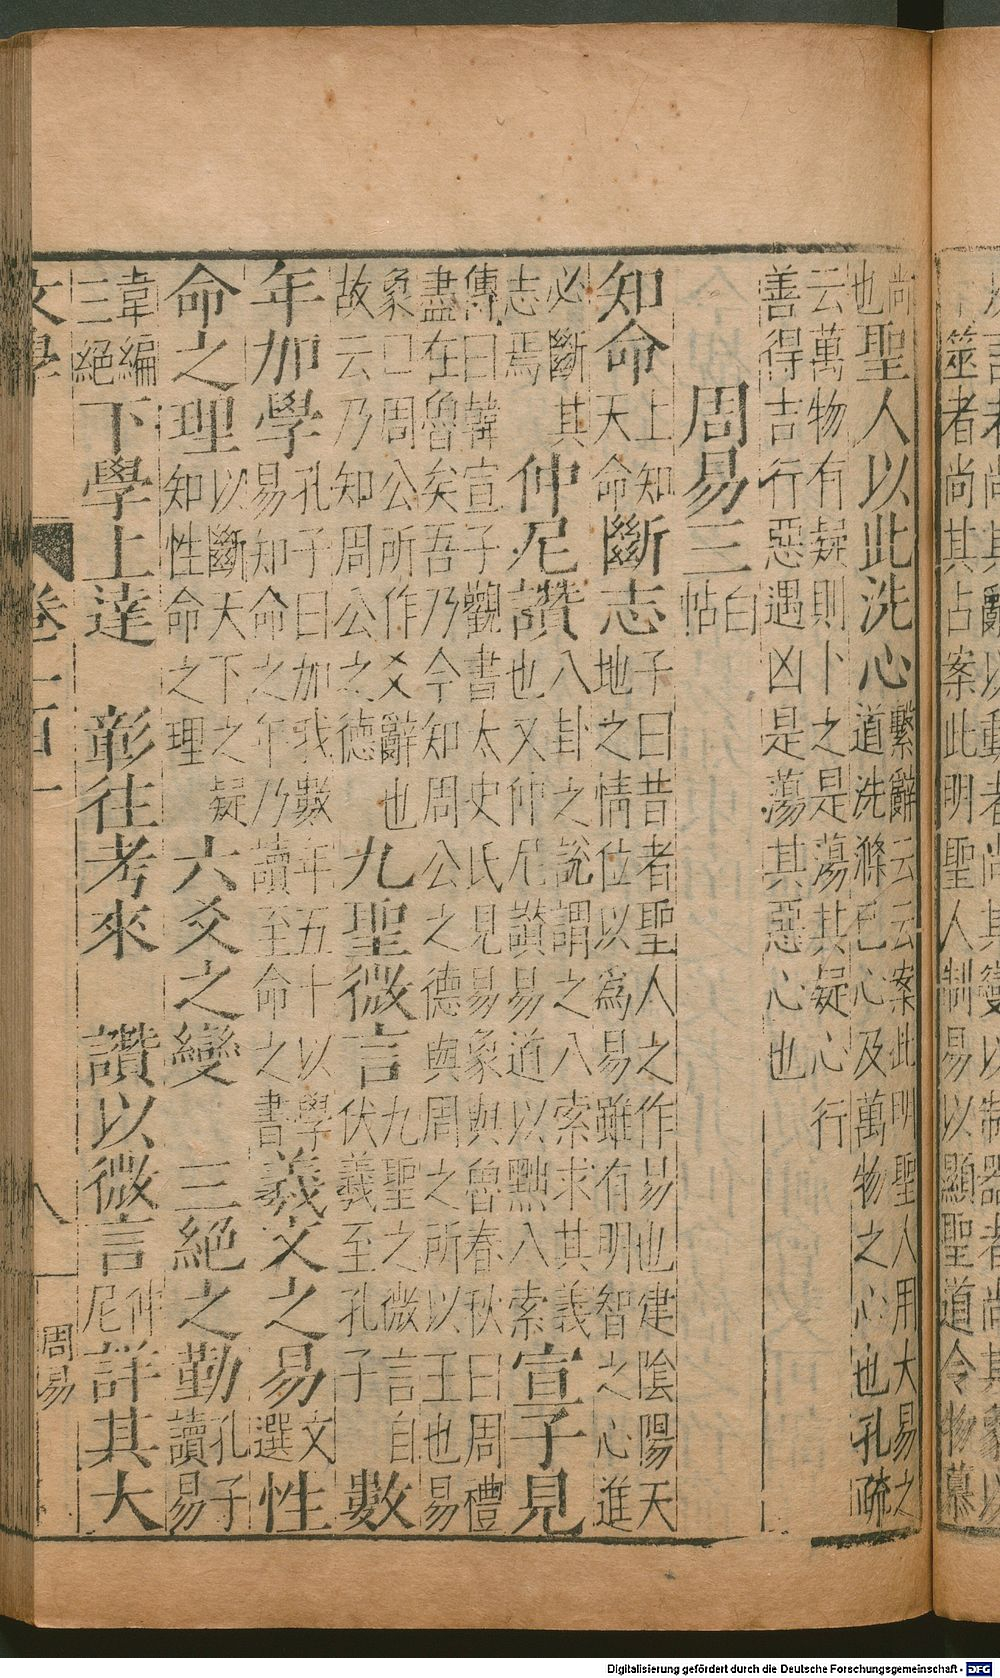 言者尚其辭以動者尚其變以制器者尚其象以
筮者尚其占案此明聖人制易以顯聖道令物慕
尚也聖人以此洗心繫辭云云案此明聖人用大易之道洗滌已心及萬物之心也孔疏
云萬物有疑則卜之是蕩其疑心行善得吉行惡遇凶是蕩其惡心也
周易三白帖
知命上知天命斷志子曰昔者聖人之作易也建陰陽天地之情位以為易雖有明智之心進
必斷其志焉 仲尼讚八卦之說謂之八索求其義也又仲尼讚易道以黜八索 宣子見
傳曰韓宣子觀書太史氏見易象與魯春秋曰周禮盡在魯矣吾乃今知周公之德與周之所以王也易
象口周公所作爻辭也故云乃知周公之德 九聖微言九聖之微言自伏羲至孔子 數
年加學孔子曰加我數年五十以學易知命之年乃讀至命之書 羲文之易文選 性
命之理以斷天下之疑知性命之理 六爻之變 三絕之勤孔子讀易
韋編三絕 下學上達 彰往考來 讚以微言仲尼 詳其大
文學 卷一百一 八 周易
Digitalisierung gefördert durch die Deutsche Forschungsgemeinschaft - DFG